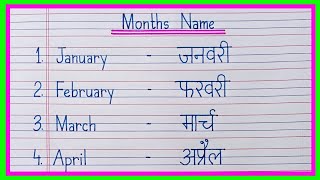 Months Name
1. January - जनवरी
2. February - फरवरी
3. March - मार्च
4. April - अप्रैल